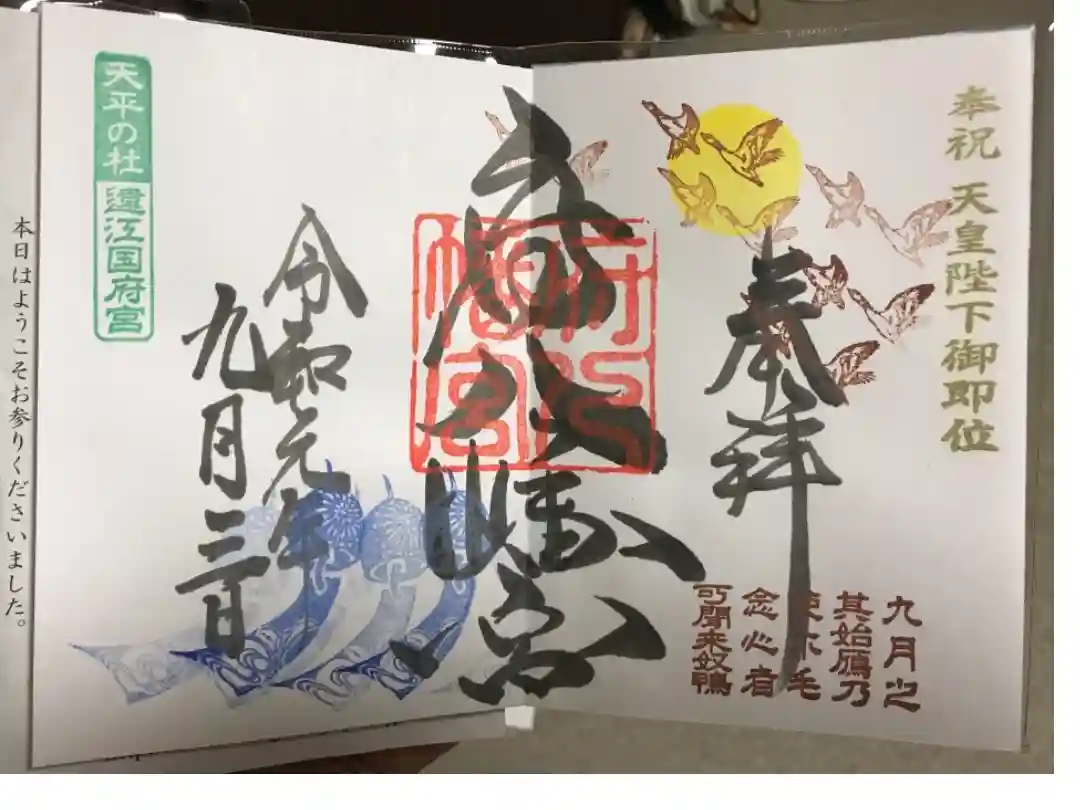 奉祝 天皇陛下御即位
奉拝
九月之
其始鴈乃
使尓毛
念心者
可聞来奴鴨
府八幡宮
府八
幡宮
令和元年
九月三日
天平の杜 遠江国府宮
本日はようこそお参りくださいました。